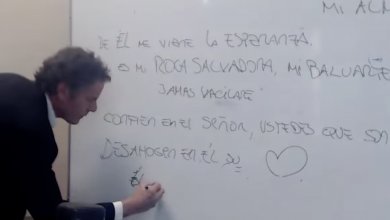 MI ALM
DE ÉL ME VIENE LA ESPERANZA.
MI ROCA SALVADORA, MI BALUARTE
JAMAS VACILARE
CONFÍEN EN EL SEÑOR, USTEDES QUE SON
DESAHOGEN EN ÉL SU
ÉL